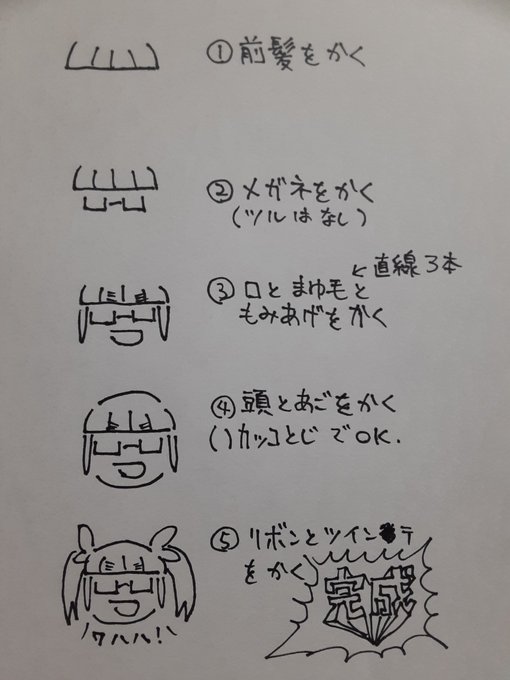 ①前髪をかく
②メガネをかく
(ツルはなし)
←直線3本
③口とまゆ毛と
もみあげをかく
④頭とあごをかく
()カッコとじでOK.
⑤リボンとツインテ
をかく
完成
ワハハ!